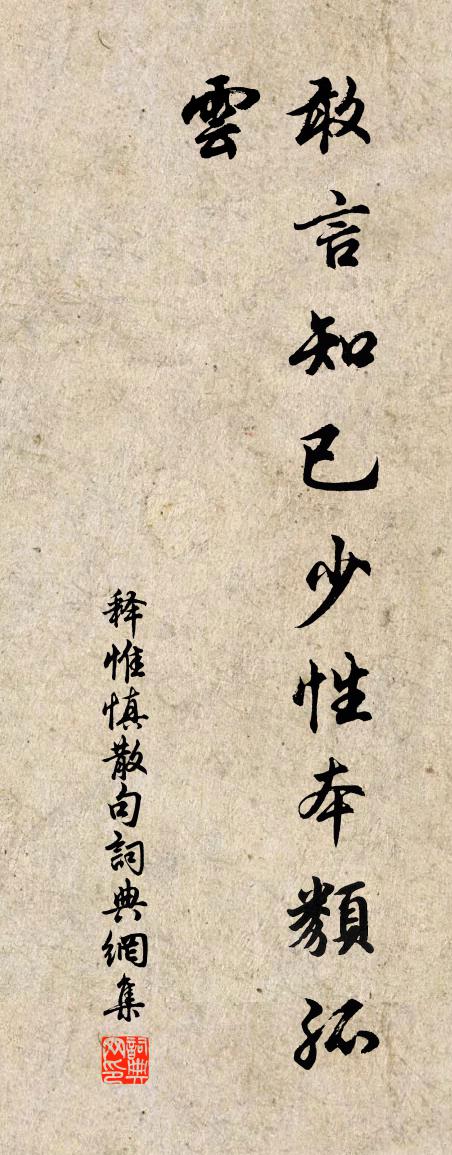 敢言知已少性本類孤
雲
释惟慎散句詞典網集
詞典網印